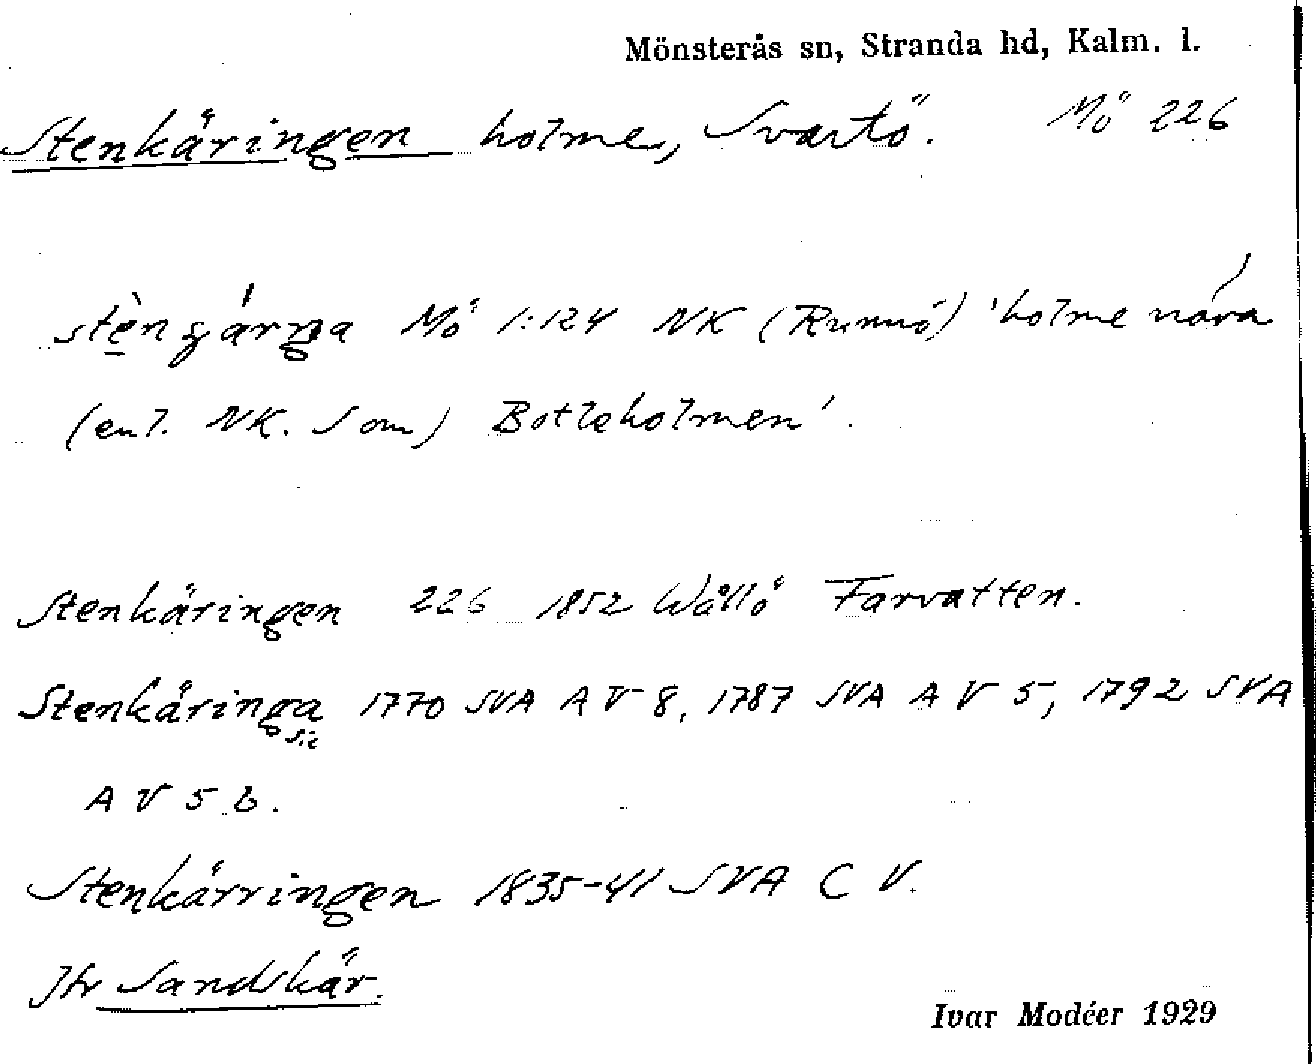 Mönsterås sn, Stranda hd, Kalm. l.
Stenkäringen holme, Svartö. Mö 226
Mö 1:124 NK (Runnö) 'holme nära
(enl. NK. S om) Botleholmen'.
Stenkäringen 226 1852 Wållö Farvatten.
Stenkäringa 1770 SVA A V 8, 1787 SVA A V 5, 1792 SVA
sic
A V 5 b.
Stenkärringen 1835-41 SVA C V.
Jfr Sandskär.
Ivar Modéer 1929